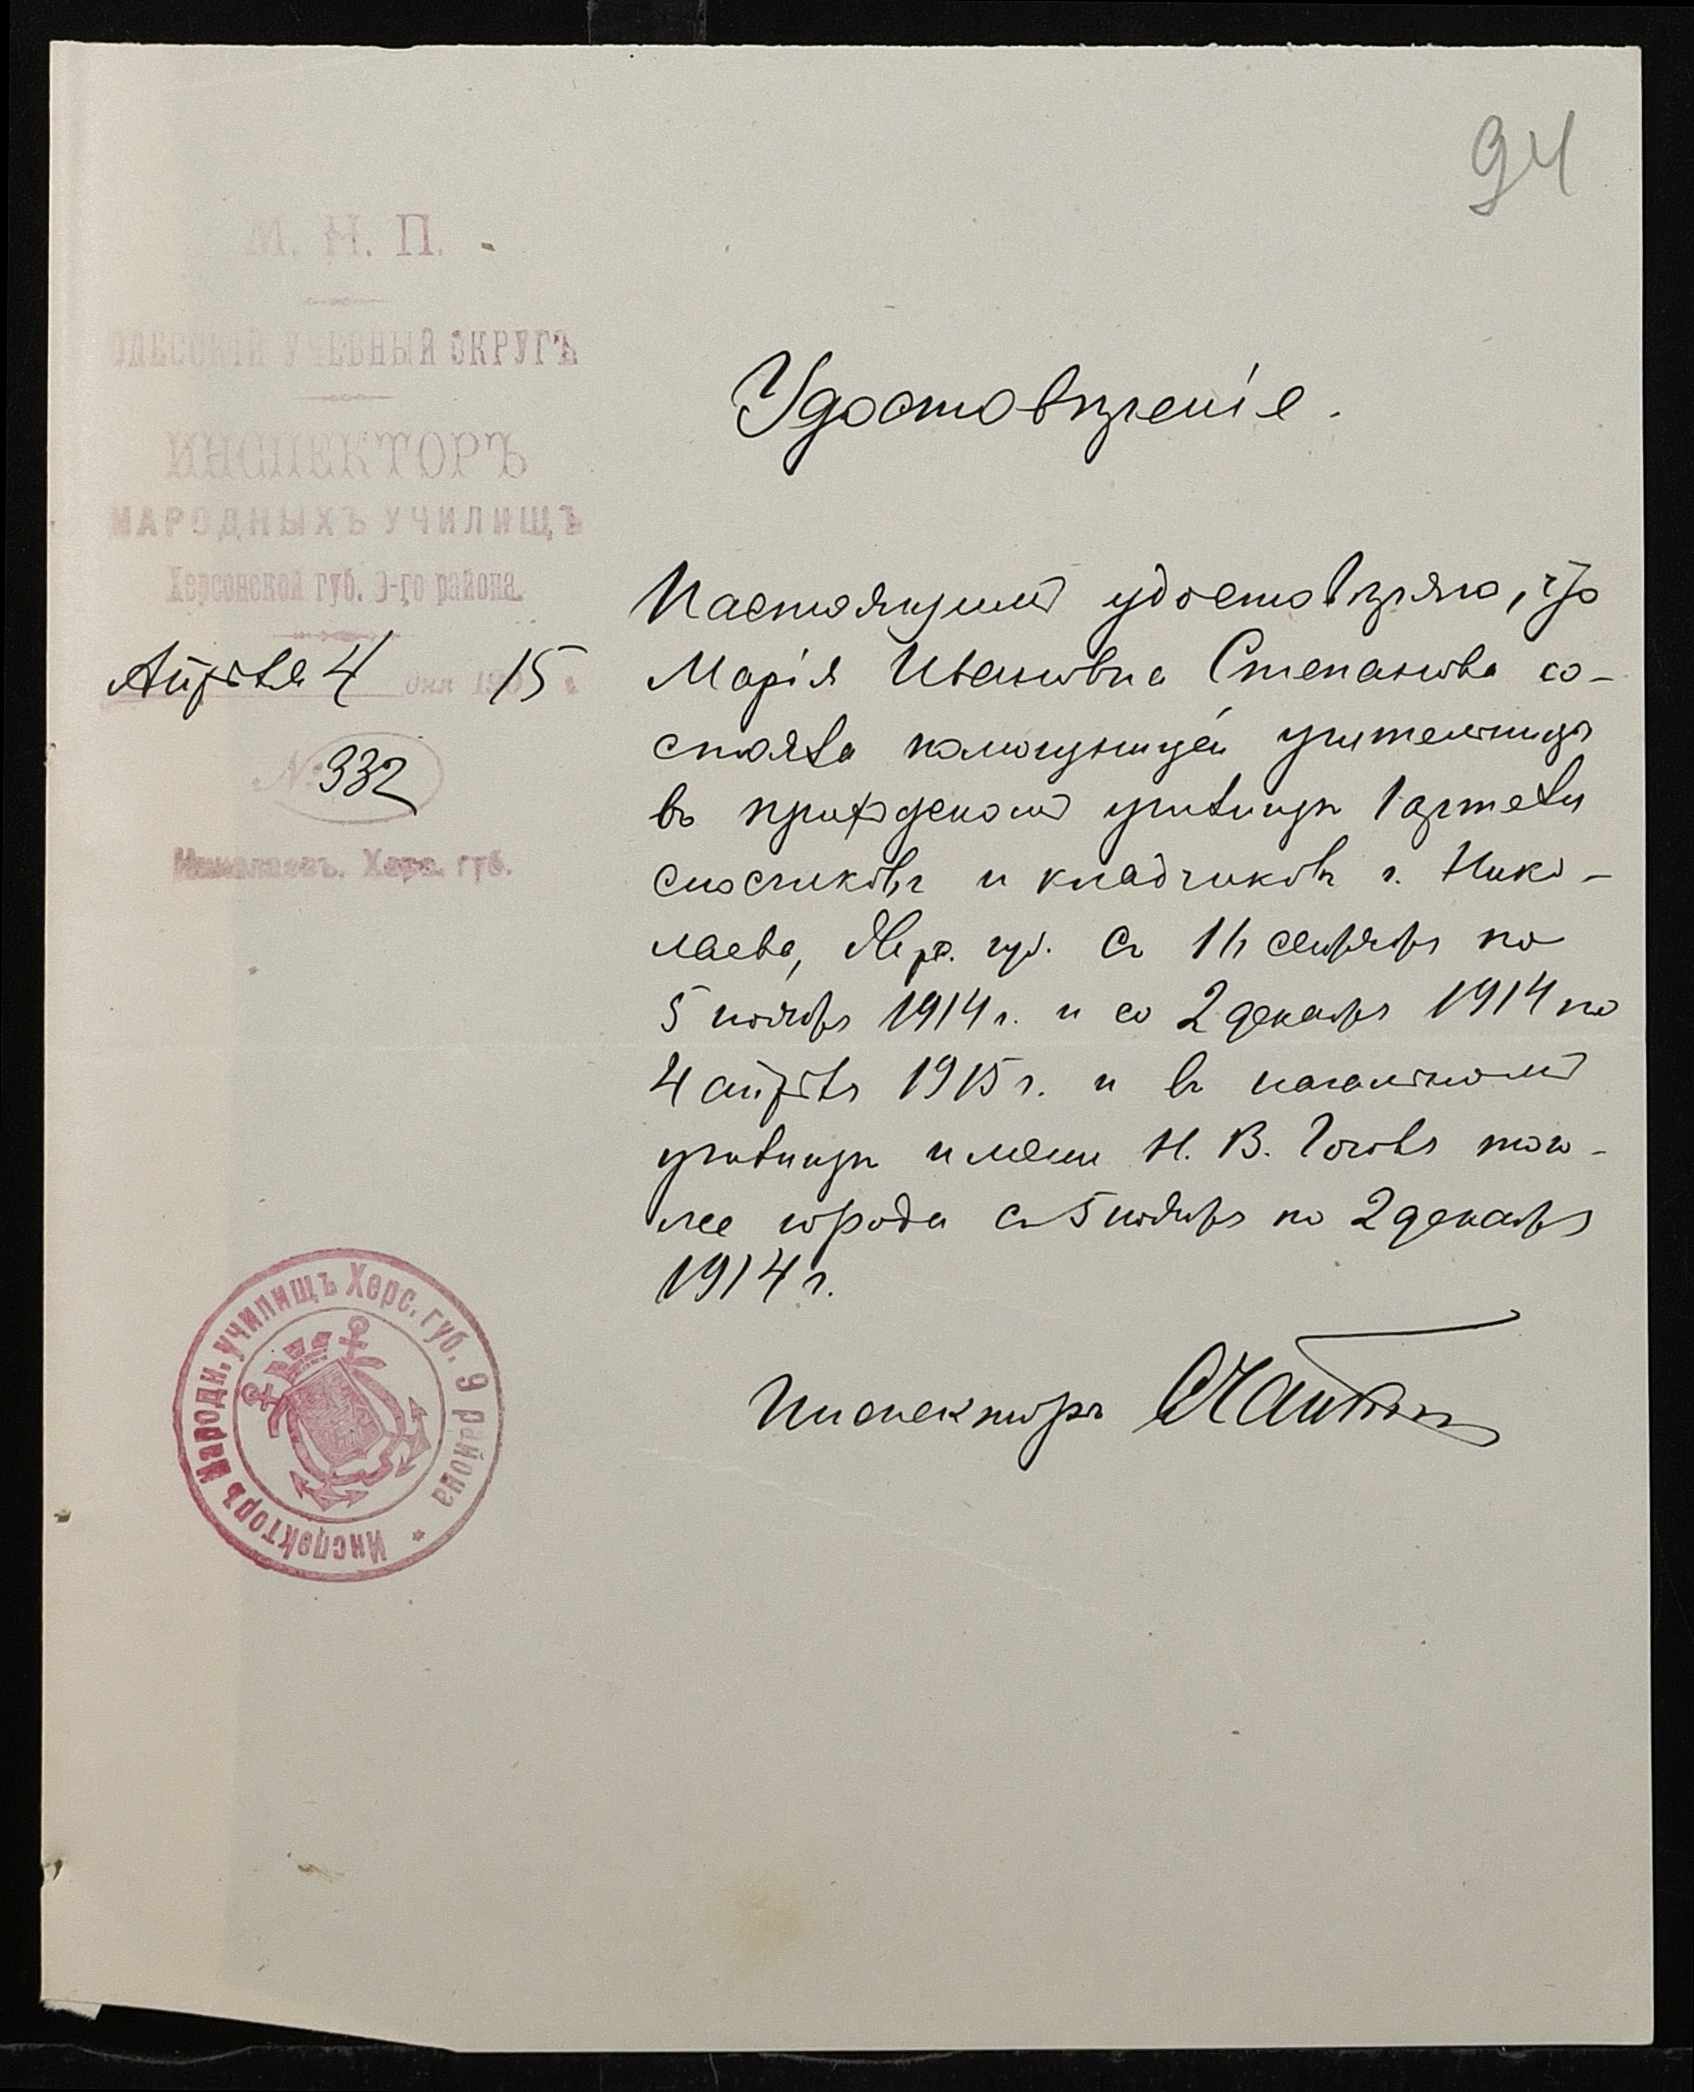 94
М. Н. П.
ОДЕССКІЙ УЧЕБНЫЙ ОКРУГЪ
ИНСПЕКТОРЪ
НАРОДНЫХЪ УЧИЛИЩЪ
Херсонской губ. 9-го района.
Апрѣля 4 дня 1915 г.
№ 332
Николаевъ. Херс. губ.
Удостовѣреніе.
Настоящимъ удостовѣряю, что
Марія Ивановна Степанова со-
стояла помощницей учительницы
въ приходскомъ училищѣ 1 артели
сносчиковъ и кладчиковъ г. Нико-
лаева, Херс. губ. съ 16 сентября по
5 ноября 1914 г. и со 2 декабря 1914 по
4 апрѣля 1915 г. и въ начальномъ
училищѣ имени Н. В. Гоголя того-
же города съ 5 ноября по 2 декабря
1914 г.
Инспекторъ
Инспекторъ Народн. училищъ Херс. губ. 9 района *